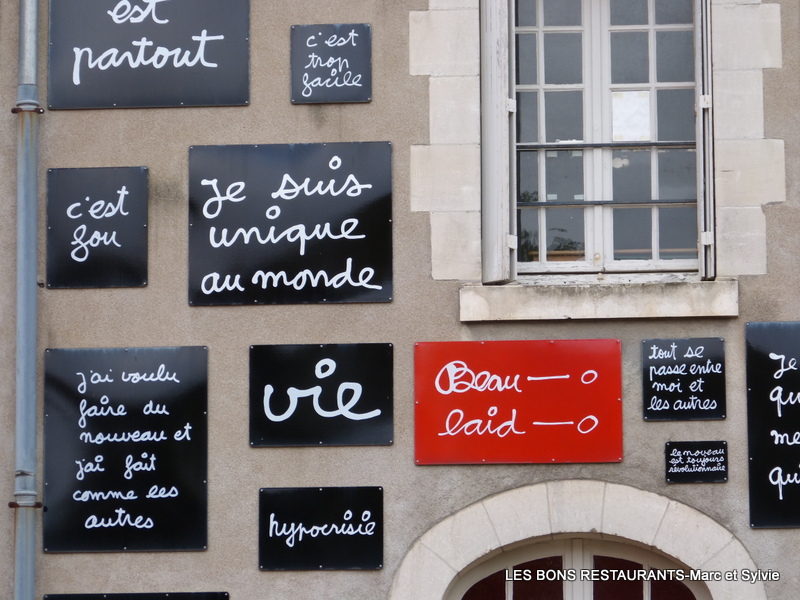 est
partout
c'est
trop
facile
c'est
fou
je suis
unique
au monde
j'ai voulu
faire du
nouveau et
j'ai fait
comme les
autres
vie
Beau — 0
laid — 0
tout se
passe entre
moi et
les autres
le nouveau
est toujours
révolutionnaire
hypocrisie
Je
qu
me
qu
LES BONS RESTAURANTS-Marc et Sylvie